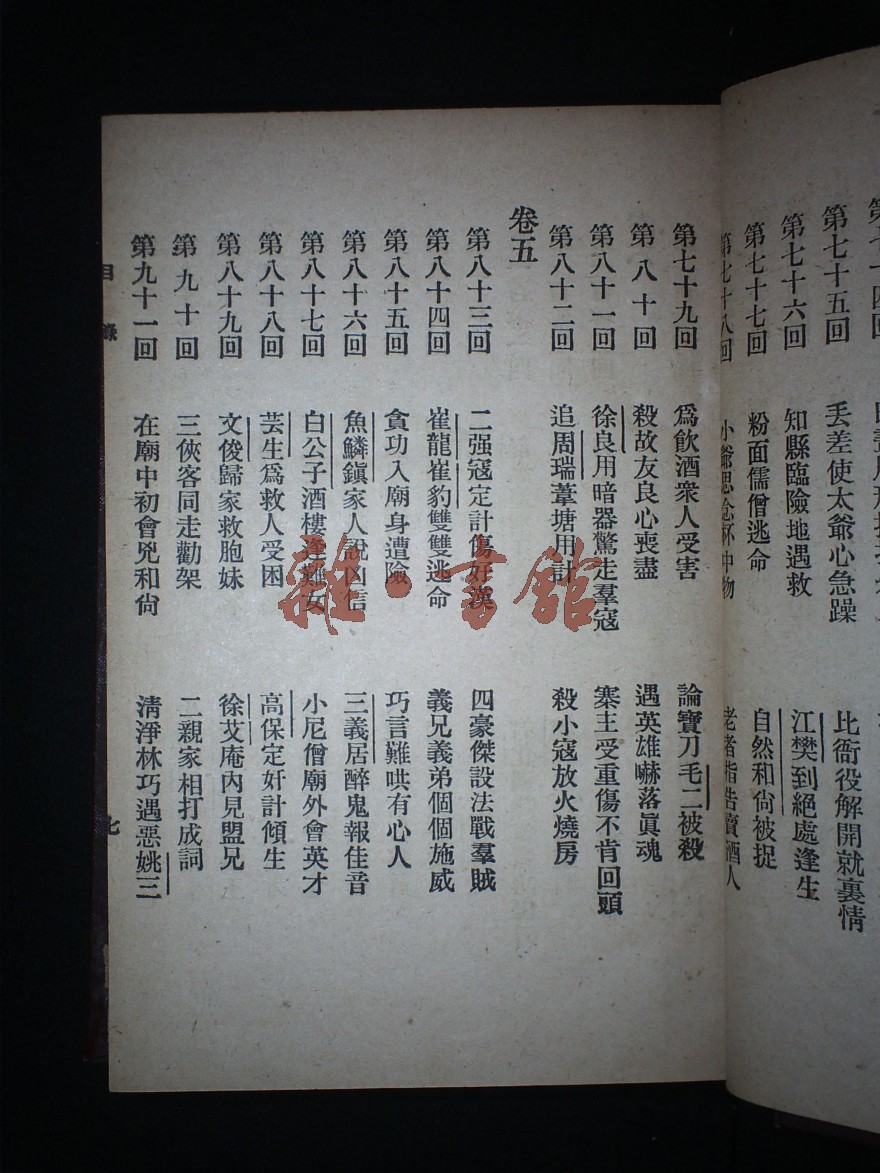 第七十五回 丟差使太爺心急躁 比衙役解開就裏情
第七十六回 知縣臨險地遇救 江樊到絕處逢生
第七十七回 粉面儒僧逃命 自然和尙被捉
第七十八回 小爺思念杯中物 老者指告賣酒人
第七十九回 爲飮酒衆人受害 論寶刀毛二被殺
第八十回 殺故友良心喪盡 遇英雄嚇落眞魂
第八十一回 徐良用暗器驚走羣寇 寨主受重傷不肯回頭
第八十二回 追周瑞葦塘用計 殺小寇放火燒房
卷五
第八十三回 二强寇定計傷好漢 四豪傑設法戰羣賊
第八十四回 崔龍崔豹雙雙逃命 義兄義弟個個施威
第八十五回 貪功入廟身遭險 巧言難哄有心人
第八十六回 魚鱗鎭家人說凶信 三義居醉鬼報佳音
第八十七回 白公子酒樓逢難女 小尼僧廟外會英才
第八十八回 芸生爲救人受困 高保定奸計傾生
第八十九回 文俊歸家救胞妹 徐艾庵內見盟兄
第九十回 三俠客同走勸架 二親家相打成詞
第九十一回 在廟中初會兇和尙 淸淨林巧遇惡姚三
目錄
七
雜·書館